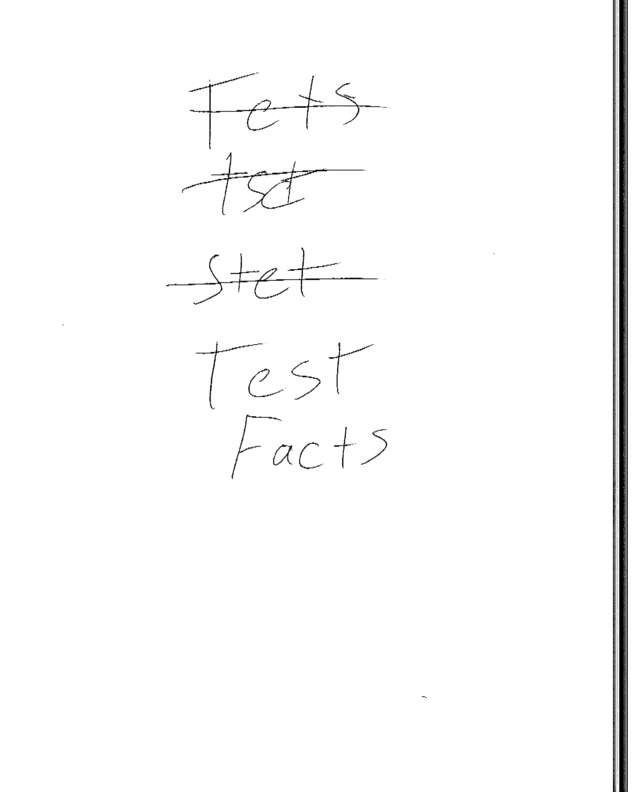 Fets
tst
stet
Test
Facts